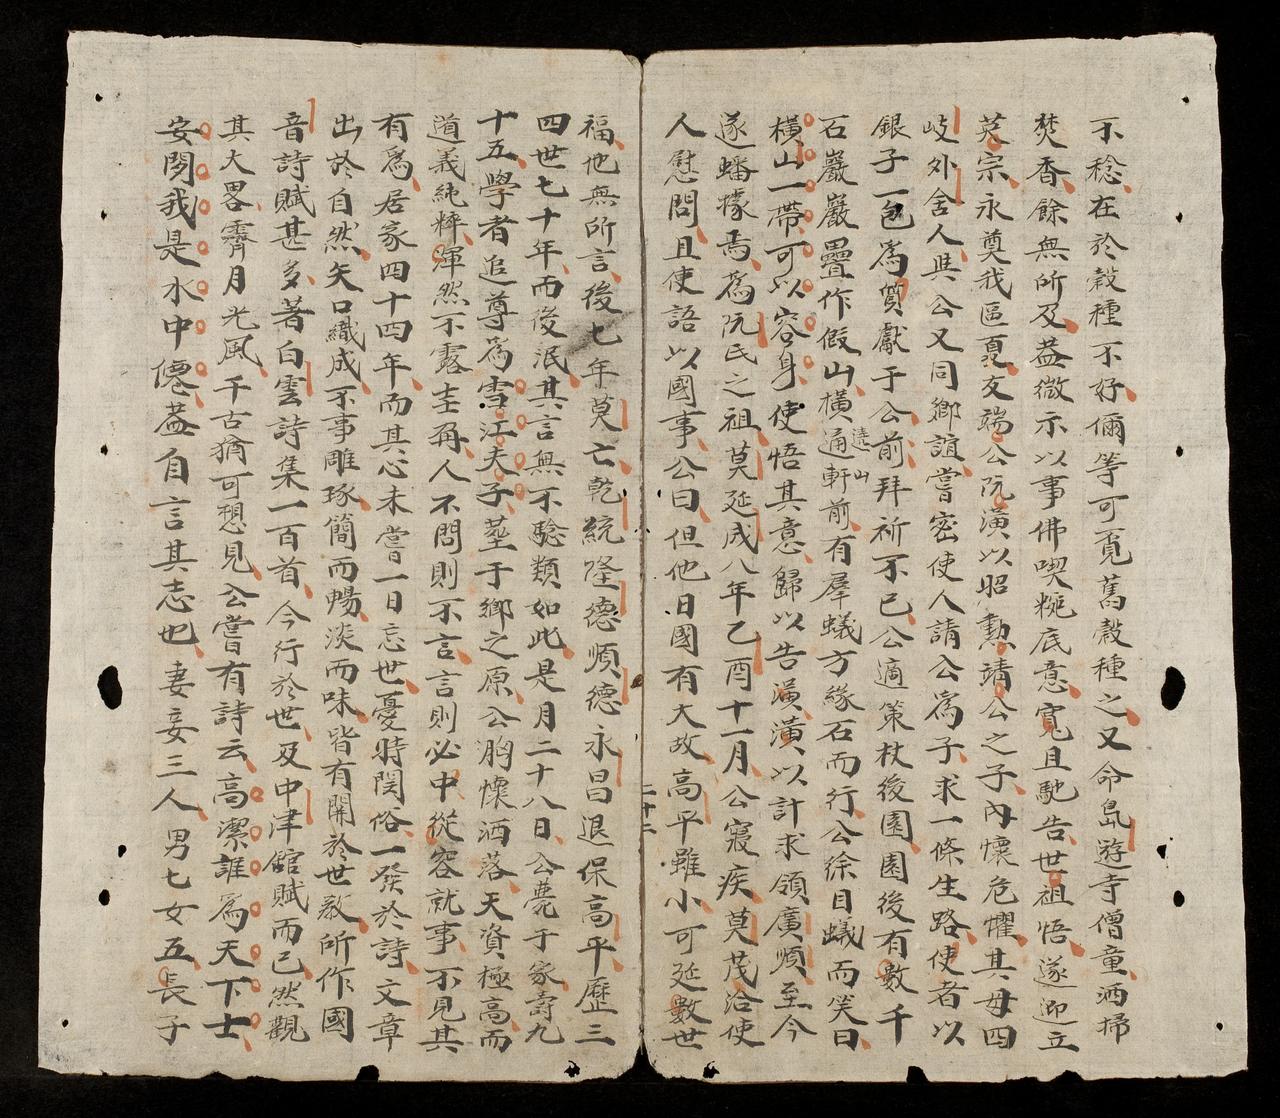 不稔在於穀種不好俻等可覔舊穀種之又命㠀遊寺僧童洒掃
焚香餘無所及葢微示以事佛喫粄底意寬且馳告世祖悟遂迎立
英宗永奠我區夏友端公阮潢以昭勳靖公之子內懷危懼其母四
岐外舍人與公又同鄉誼嘗密使人請公爲子求一條生路使者以
銀子一包爲質獻于公前拜祈不已公適策杖後園園後有數千
石巖巖疊作假山橫遶山通軒前有羣蟻方緣石而行公徐目蟻而笑曰
橫山一帶可以容身使悟其意歸以告潢潢以計求領廣順至今
遂蟠據焉爲阮氏之祖莫延成八年乙酉十一月公寢疾莫茂洽使
人慰問且使語以國事公曰但他日國有大故高平雖小可延數世
二十二
福他無所言後七年莫亡乾統隆德順德永昌退保高平歷三
四世七十年而後泯其言無不驗類如此是月二十八日公薨于家壽九
十五學者追尊爲雪江夫子塟于鄉之原公胸懷洒落天資極高而
道義純粹渾然不露圭角人不問則不言言則必中從容就事不見其
有爲居家四十四年而其心未嘗一日忘世憂時閔俗一發於詩文章
出於自然矢口織成不事雕琢簡而暢淡而味皆有關於世敎所作國
音詩賦甚多著白雲詩集一百首今行於世及中津舘賦而已然觀
其大畧霽月光風千古猶可想見公嘗有詩云高潔誰爲天下士
安閒我是水中僊葢自言其志也妻妾三人男七女五長子